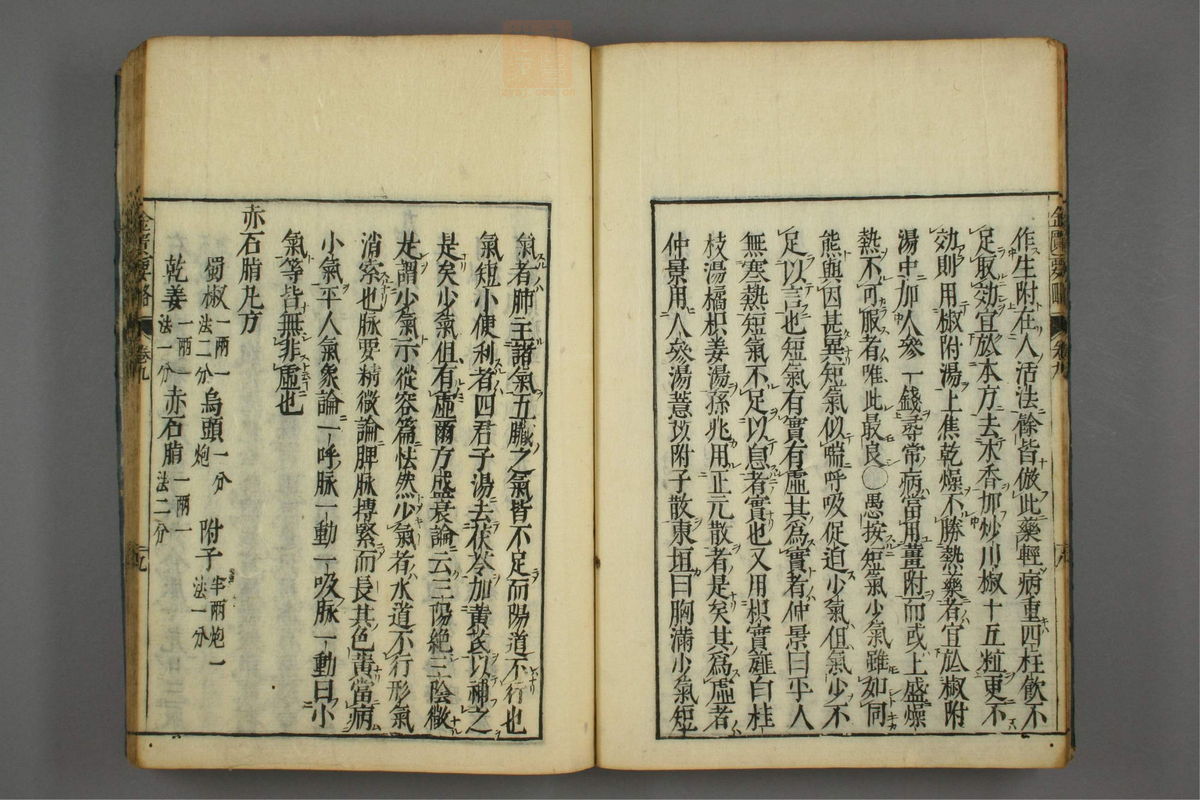 作生附在人活法餘皆倣此藥輕病重四柱飮不
足取効宜於本方去木香加炒川椒十五粒更不
効則用椒附湯上焦乾燥不勝熱藥者宜於椒附
湯中加人參一錢尋常病當用薑附而或上盛燥
熱不可服者唯此最良○愚按短氣少氣雖如同
態與因甚異短氣似喘呼吸促迫少氣但氣少不
足以言也短氣有實有虛其爲實者仲景曰平人
無寒熱短氣不足以息者實也又用枳實薤白桂
枝湯橘枳姜湯孫兆用正元散者是矣其爲虛者
仲景用人參湯薏苡附子散東垣曰胸滿少氣短
氣者肺主諸氣五臟之氣皆不足而陽道不行也
氣短小便利者四君子湯去茯苓加黄芪以補之
是矣少氣但有虛爾方盛衰論云三陽絶三陰微
是謂少氣示從容篇怯然少氣者水道不行形氣
消索也脉要精微論脾脉搏緊而長其色黄當病
小氣平人氣象論一呼脉一動一吸脉一動曰小
氣等皆無非虛也
赤石脂丸方
蜀椒 一兩一法二分 烏頭 一分炮 附子 半兩炮一法一分
乾姜 一兩一法一分 赤石脂 一兩一法二分
金匱要略 卷九